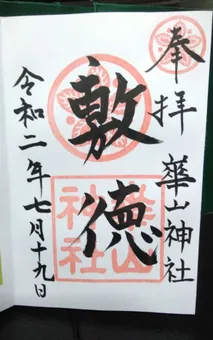 奉拝
華山神社
敷徳
華山神社
令和二年七月十九日